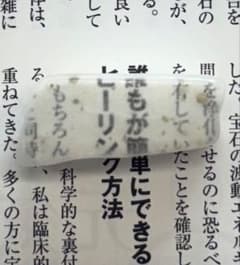 石の
が、
良い
して
体は、
雑に
した。宝石の波動エネル
間を浄化させるのに恐るべ
を有していたことを確認し
誰もが簡単にできる
ヒーリング方法
もちろん、科学的な裏付
る。と同時に、私は臨床的
重ねてきた。多くの方に宝